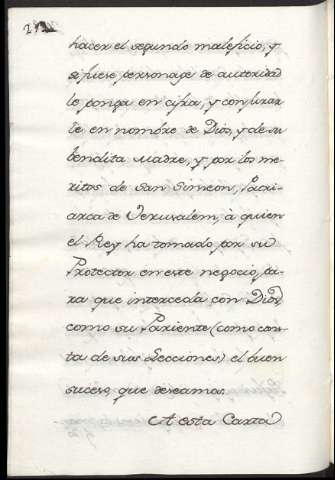 hacer el segundo maleficio, y
si fuese personage de autoridad
le ponga en cifra, y conjurar
le en nombre de Dios, y de su
bendita Madre, y por los me-
ritos de San Simeon, Patri-
arca de Jerusalem, à quien
el Rey ha tomado por su
Protector en este negocio, pa-
ra que interceda con Dios,
como su Pariente (como cons-
ta de sus Lecciones) el buen
suceso, que deseamos.
A esta Carta